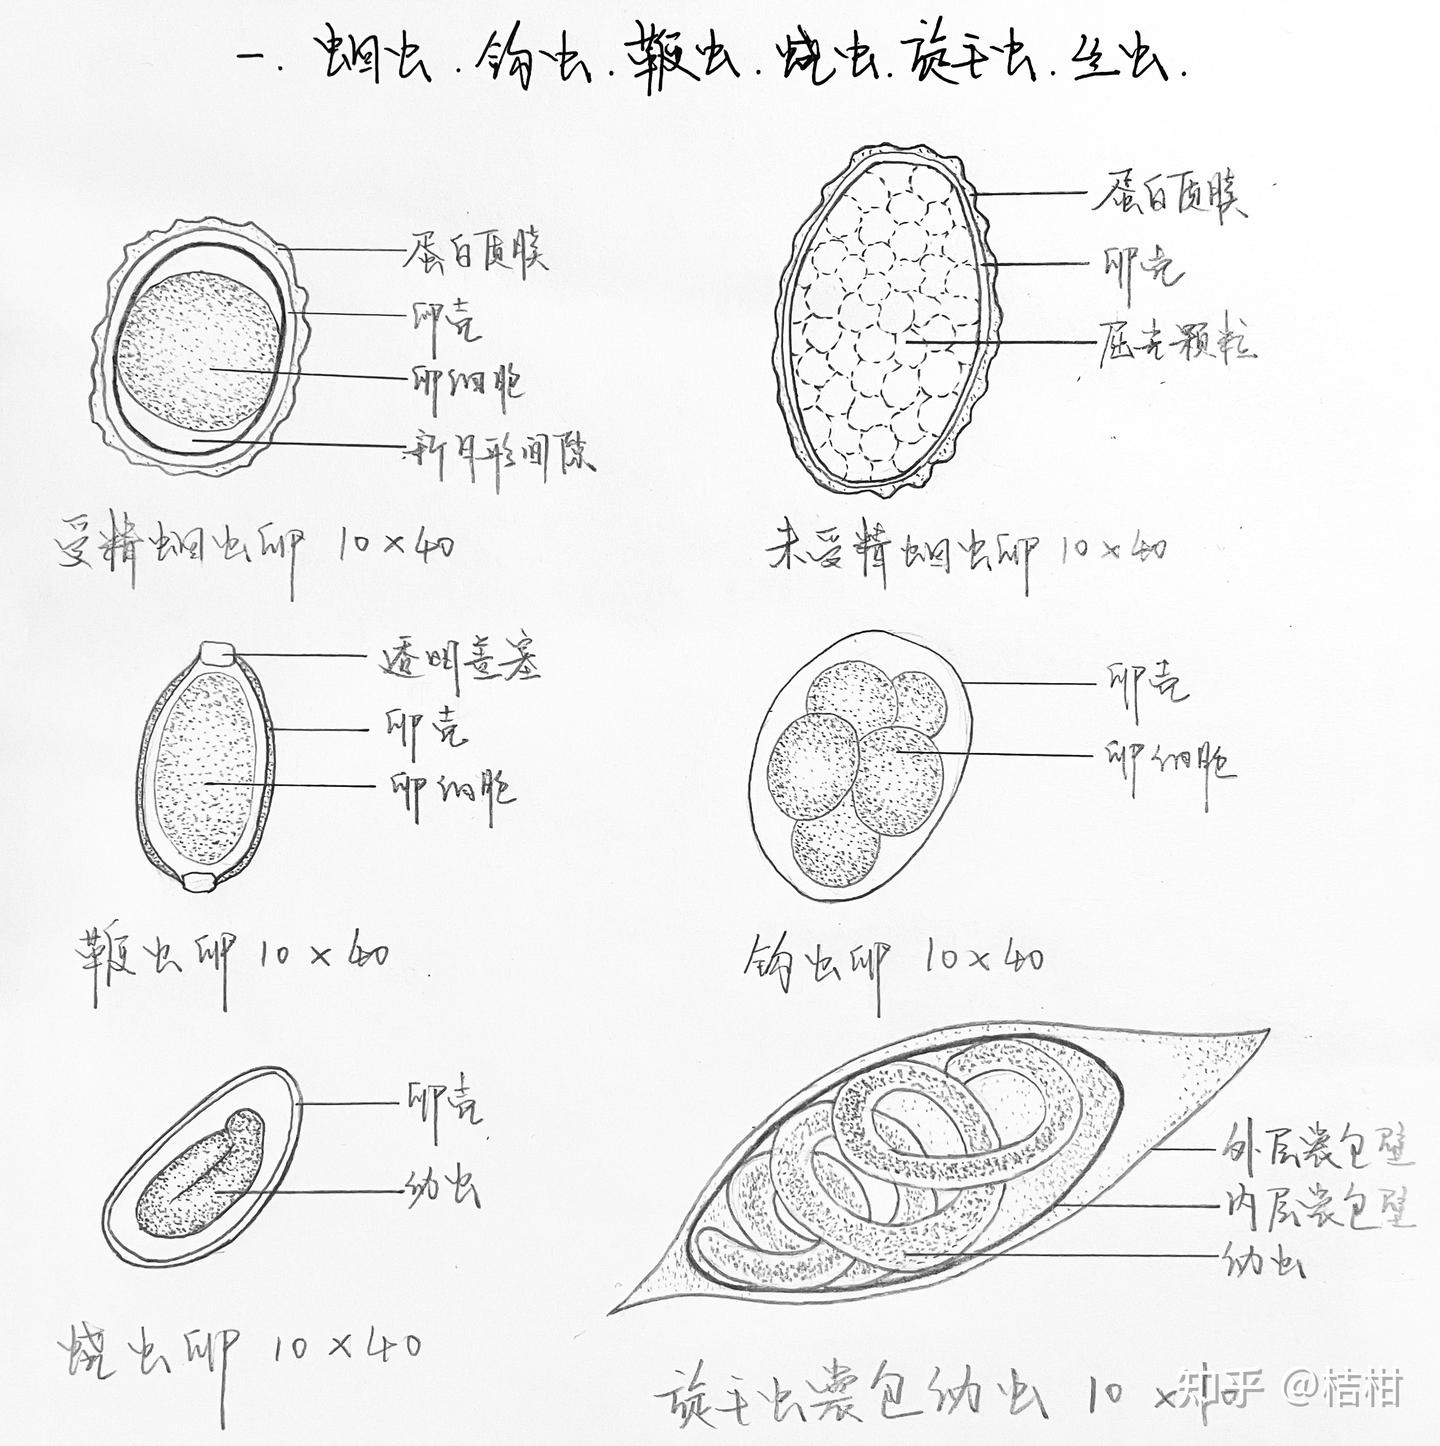 一. 蛔虫. 钩虫. 鞭虫. 蛲虫. 旋毛虫. 丝虫.
蛋白质膜
卵壳
卵细胞
新月形间隙
受精蛔虫卵 10×40
蛋白质膜
卵壳
屈光颗粒
未受精蛔虫卵 10×40
透明盖塞
卵壳
卵细胞
鞭虫卵 10×40
卵壳
卵细胞
钩虫卵 10×40
卵壳
幼虫
蛲虫卵 10×40
外层囊包壁
内层囊包壁
幼虫
旋毛虫囊包幼虫 10×
知乎 @桔柑